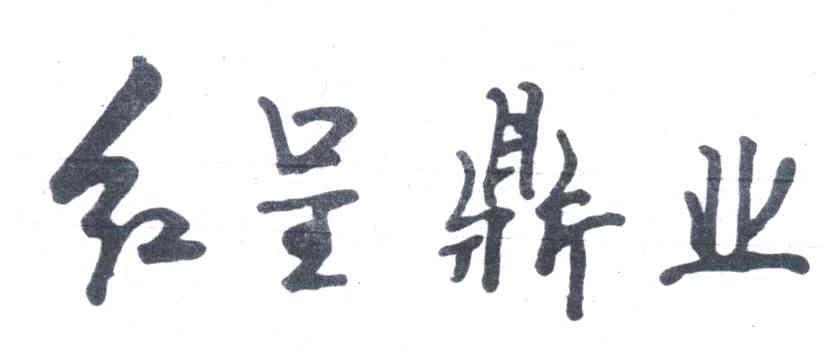 红呈鼎业